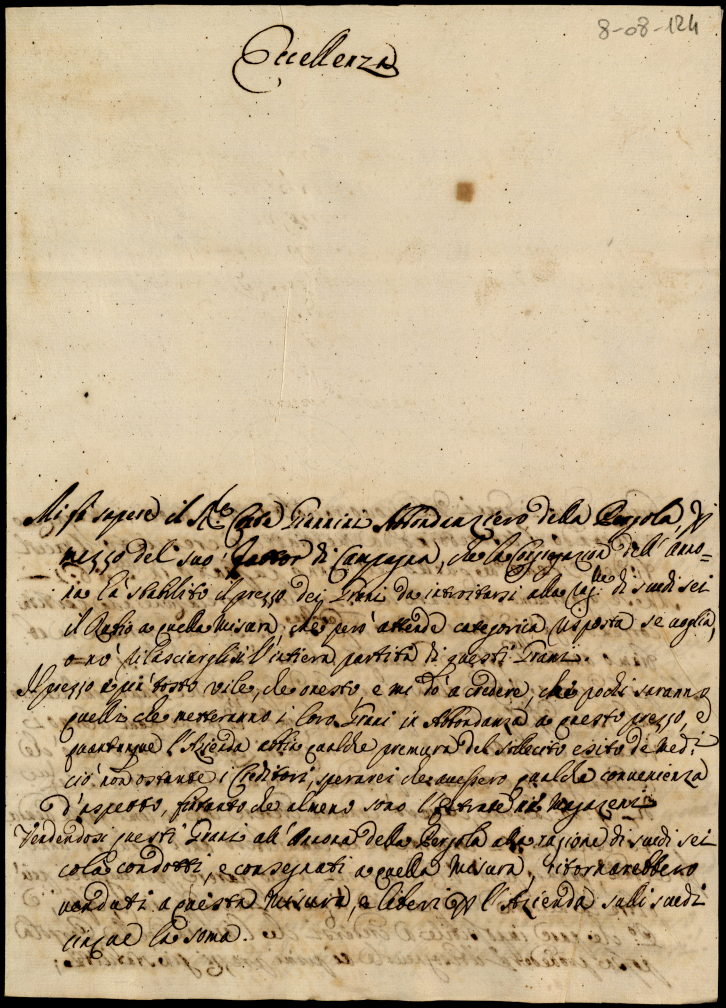 8-08-124
Eccellenza
Mi fà sapere il Sig.re Giannini Abbondanziero della Pergola, p
mezzo del suo Fattor di Campagna, che la Congregazion dell'Anno=
na hà stabilito il prezzo dei Grani da introitarsi alla rag.ne di scudi sei
il Rubio a quella Misura, che però attende categorica risposta se voglia,
o nò rilasciarglisi l'intiera partita di questi Grani.
Il prezzo è più tosto vile, che onesto, e mi dò a credere, che pochi saranno
quelli che metteranno i loro Grani in Abbondanza a questo prezzo, e
quantunque l'Azienda abbia qualche premura del sollecito esito de med.i
ciò non ostante i Creditori, sperarei che avessero qualche convenienza
d'aspetto, fintanto che almeno sono l'Entrate nei Magazeni.
Vendendosi questi Grani all'Annona della Pergola alla ragione di scudi sei
colà condotti, e consegnati a quella Misura, ritornarebbero
venduti a questa Misura, e liberi p l'Azienda sulli scudi
cinque la soma.